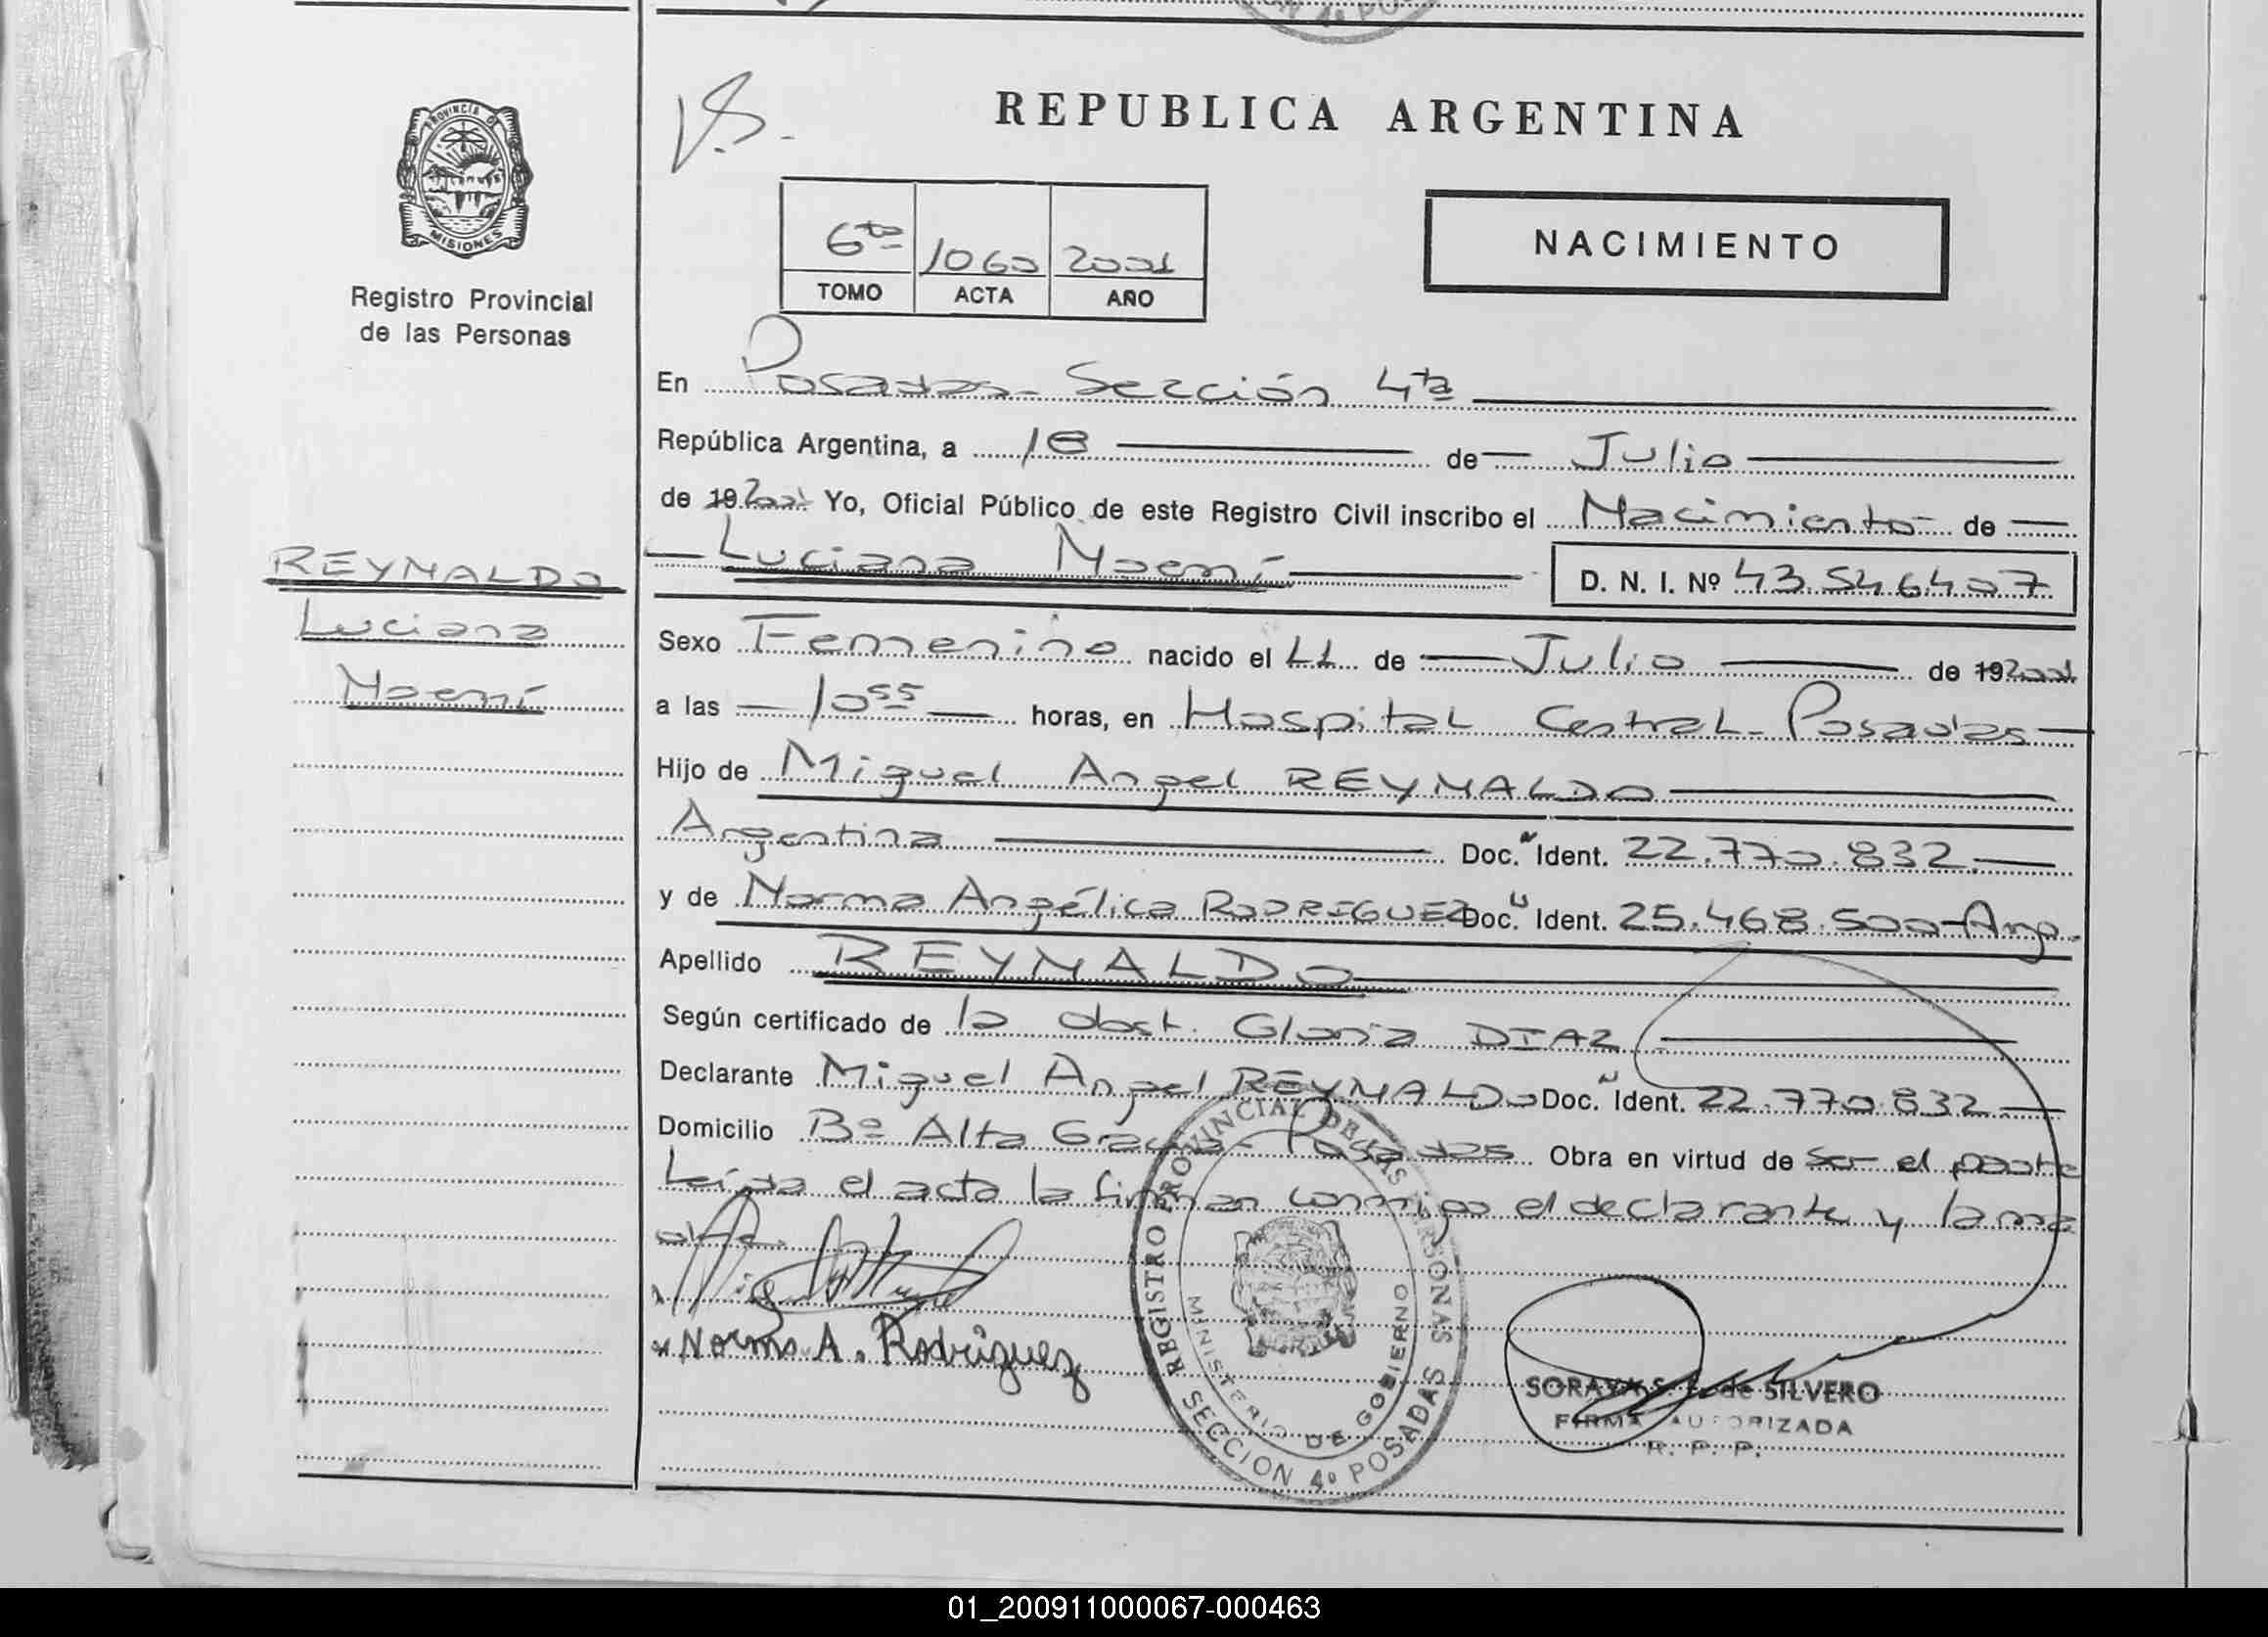 ON 4º POS
REPUBLICA ARGENTINA
PROVINCIA DE
MISIONES
Registro Provincial
de las Personas
6ta 1060 2001
TOMO ACTA AÑO
NACIMIENTO
En Posadas - Sección 4ta
República Argentina, a 18 de Julio
de 19 2001 Yo, Oficial Público de este Registro Civil inscribo el Nacimiento de
Luciana Noemí D. N. I. Nº 43.546.407
REYNALDO
Luciana
Noemí
Sexo Femenino nacido el 11 de Julio de 19 2001
a las 10 55 horas, en Hospital Central - Posadas
Hijo de Miguel Angel REYNALDO
Argentina Doc. Ident. 22.770.832
y de Norma Angélica RODRIGUEZ Doc. Ident. 25.468.500 - Arg.
Apellido REYNALDO
Según certificado de la obst. Gloria DIAZ
Declarante Miguel Angel REYNALDO Doc. Ident. 22.770.832
Domicilio Bº Alta Gracia - Posadas Obra en virtud de ser el padre
Leída el acta la firman conmigo el declarante y la ma
dre.
Norma A. Rodriguez
REGISTRO PROVINCIAL DE LAS PERSONAS
MINISTERIO DE GOBIERNO
SECCION 4º POSADAS
SORAYA S. de SILVERO
FIRMA AUTORIZADA
R. P. P.
01_200911000067-000463